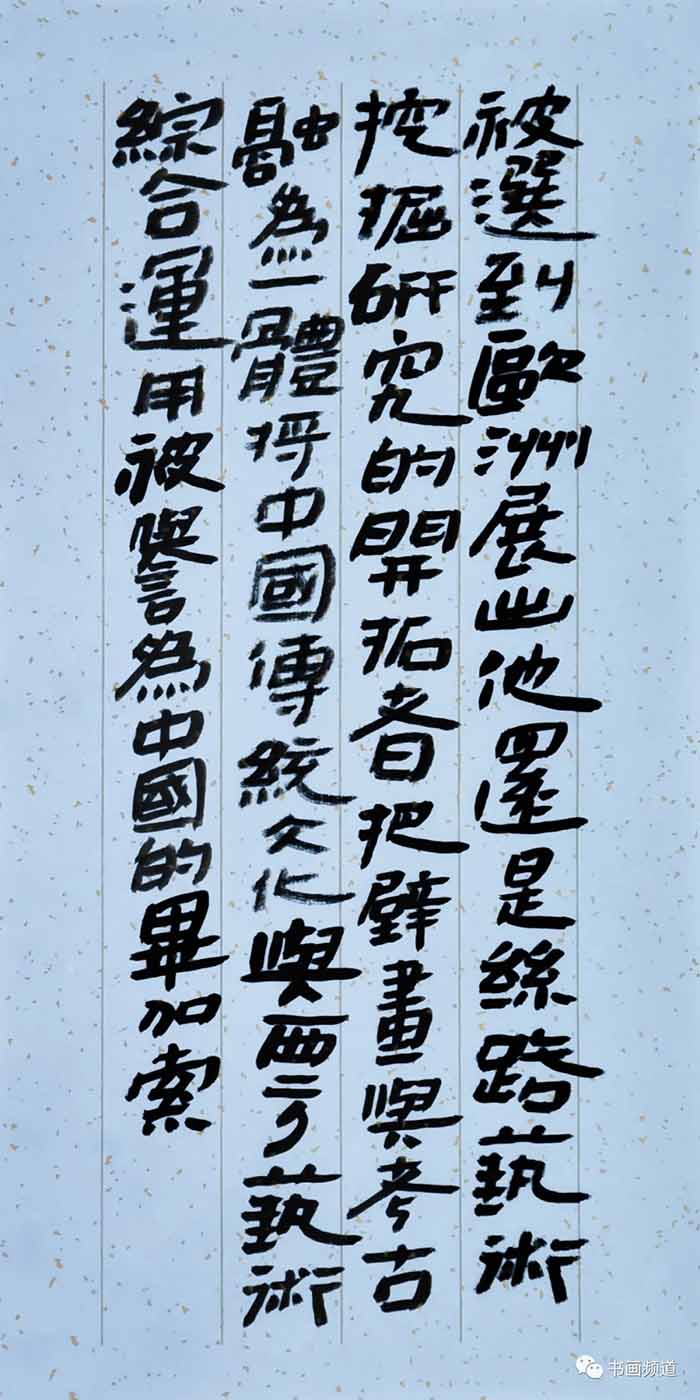 被選到歐洲展出他還是絲路藝術
挖掘研究的開拓者把壁畫與考古
融為一體將中國傳統文化與西方藝術
綜合運用被譽為中國的畢加索
书画频道